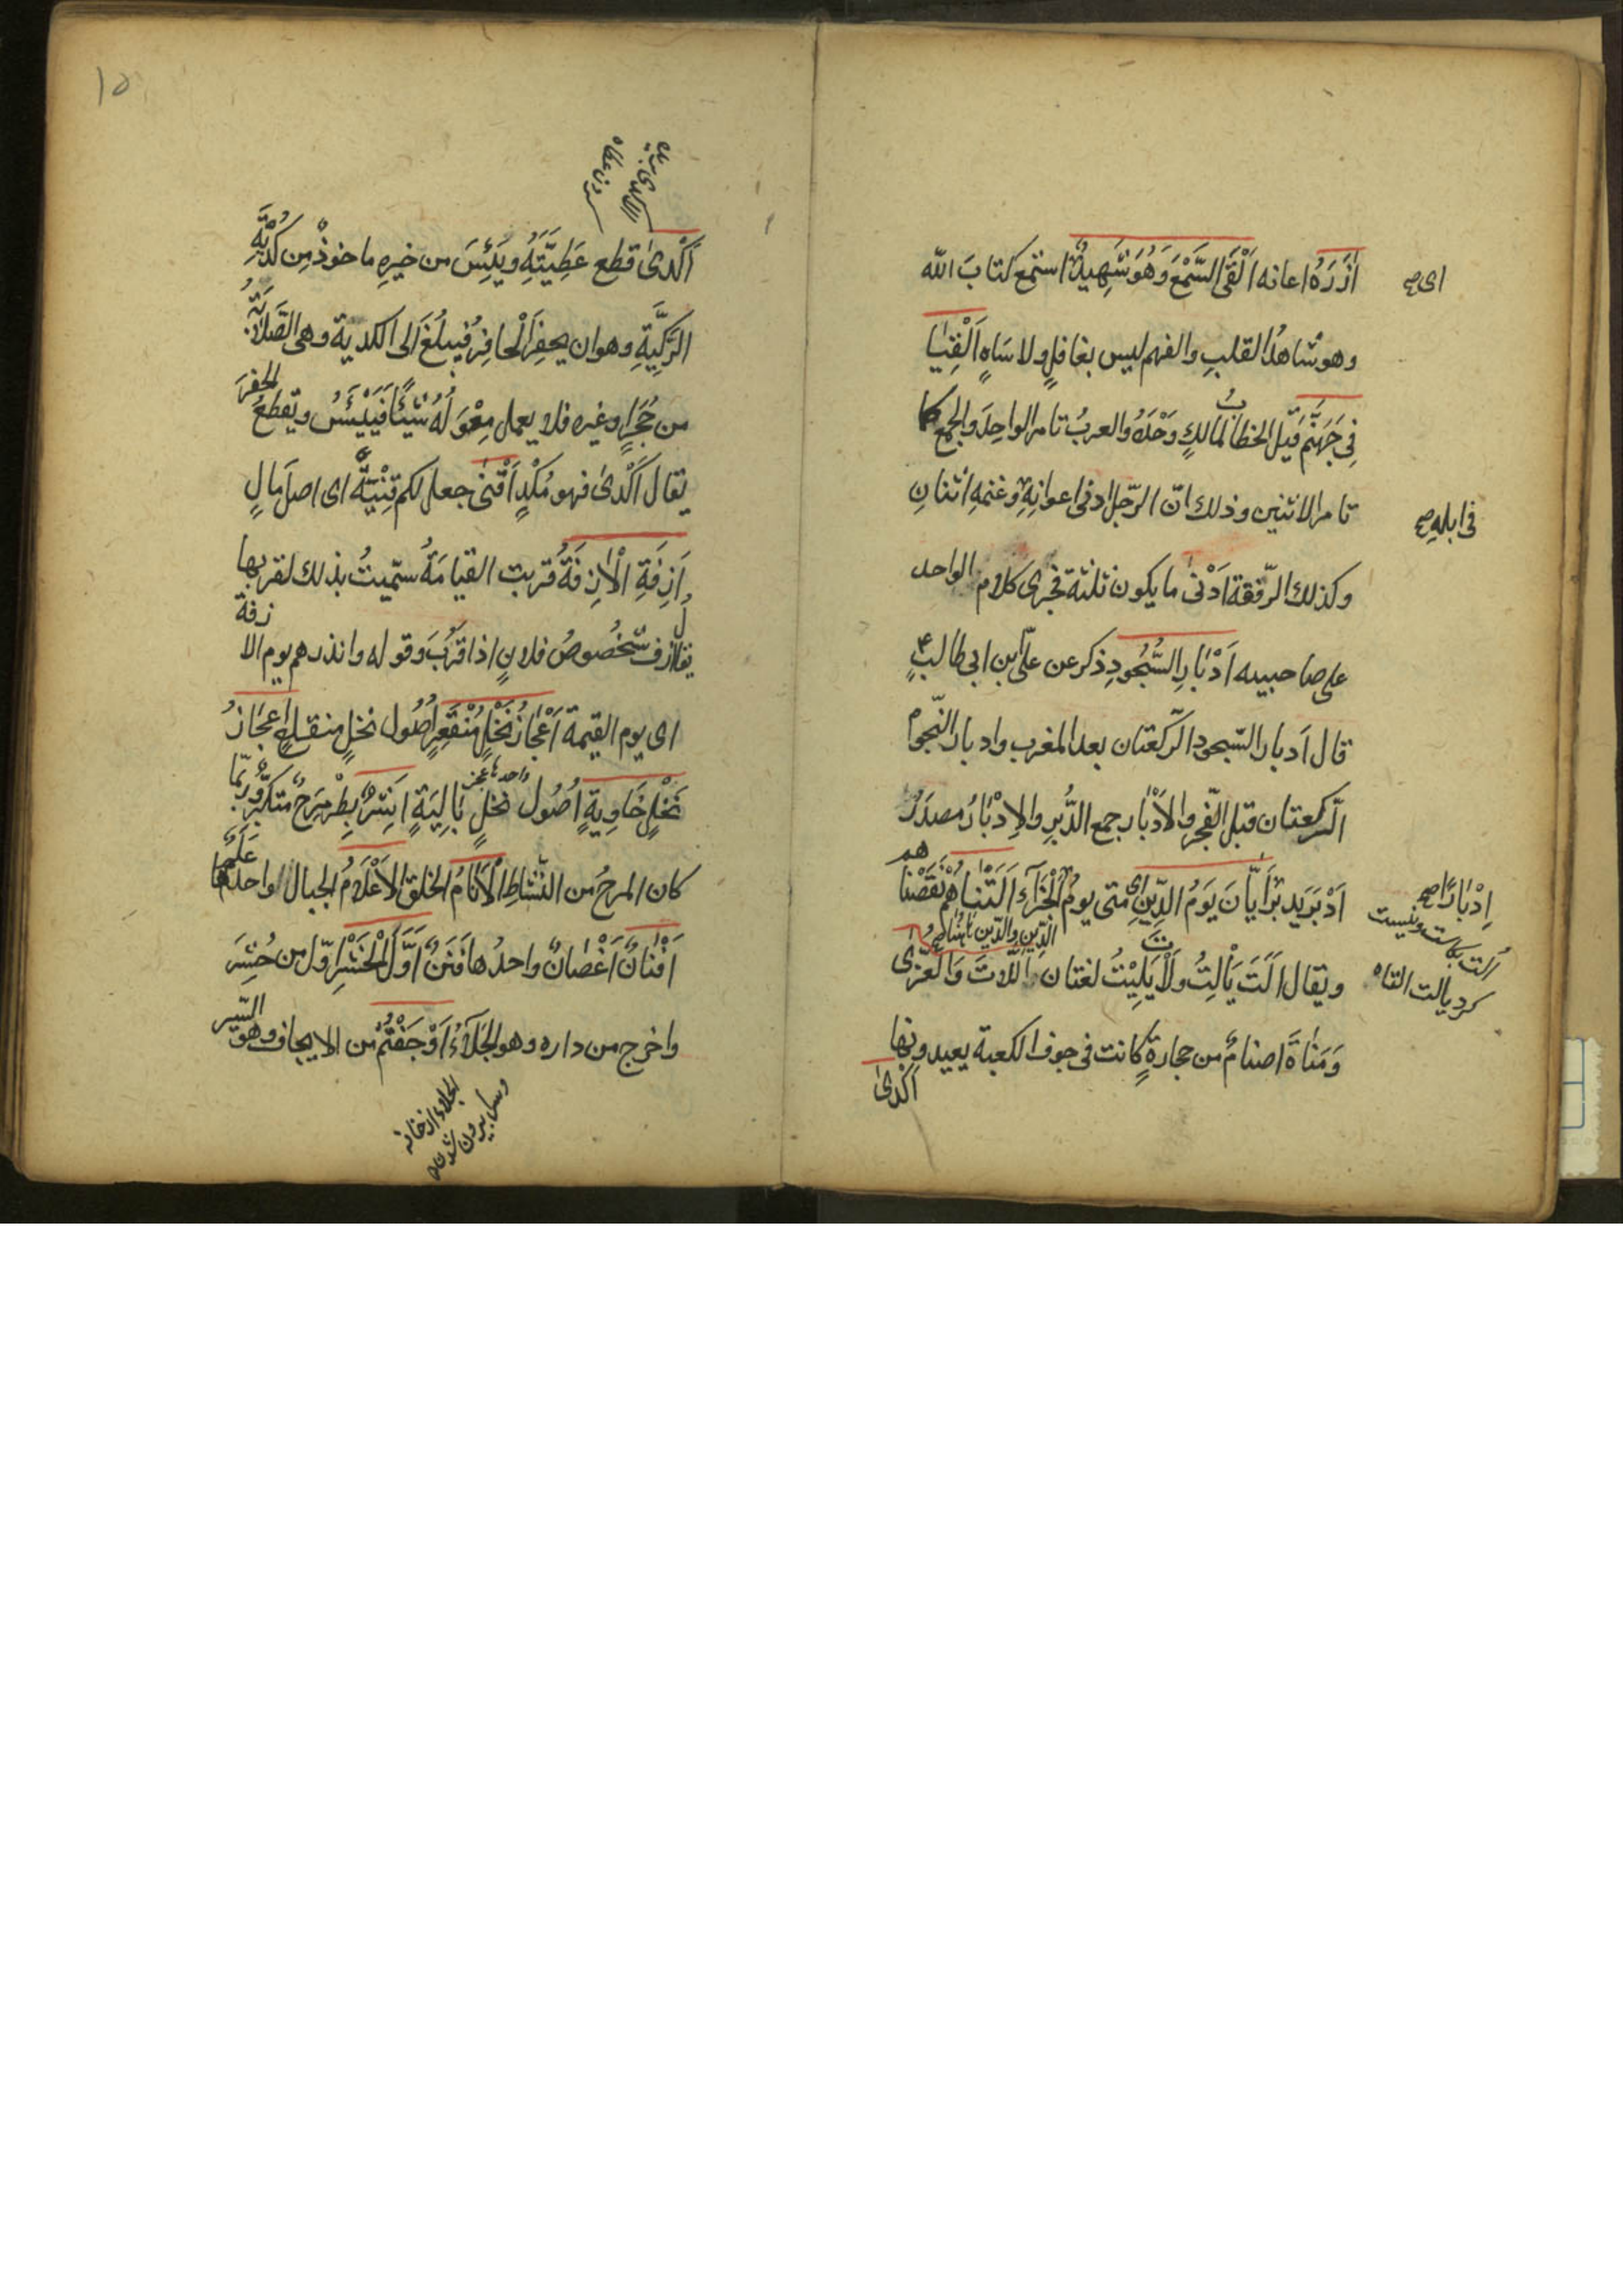 اٰزَرَهُ اعانه اَلْقَى السَّمْعَ وَهُوَ شَهِيدٌ استمع كتابَ اللّه
اى صح
وهو شاهدُ القلبِ والفهم ليس بغافلٍ ولا سَاهٍ اَلْقِيَا
فِى جَهَنَّمَ قيل الخطابُ لمالكٍ وَحْدَهُ والعربُ تامر الواحِدَ والجمع كما
تامر الاثنين وذلك انّ الرّجل ادنى اعوانِهِ وغنمهِ اثنانِ
فى ابلهِ صح
وكذلك الرّفقة اَدْنىٰ ما يكون ثلثة فجرى كلام الواحد
على صاحبيه اَدْبَارِ السُّجُودِ ذكر عن علىّ بن ابى طالبٍ ع
قال اَدبار السّجود الرّكعتان بعد المغرب وادبار النّجوم
الرّكعتان قبل الفجر والاَدْبَار جمع الدُّبرِ والاِدْبَارُ مصدرُ
اَدْبَرَ يدبر اَيَّانَ يَوْمُ الدِّينِ اى متى يومُ الْجَزَآءِ اَلَتْنَاهُمْ نقَصْنا
هم
اِدْبَارًا صح
ويقال اَلَتَ يَأْلِتُ ولَاتَ يَلِيْتُ لغتان اللَّاتَ وَالْعُزّى
اَلت بكاست ونيست
كرد يالت التاه
وَمَنَاةَ اصنامٌ من حجارةٍ كانت فى جوف الكعبة يعبدونها
اكدىٰ
١٥
اَكْدىٰ قطع عَطِيَّتَهُ ويَئِسَ من خيرِهِ ماخوذٌ مِن كُدْيَةِ
الرَّكِيَّةِ وهو ان يحفِرَ الْحافِرُ فيبلُغَ الى الكدية وهى الصَّلابَةُ
من حَجَرٍ او غيره فلا يعمل مِعْوَلُهُ شَيْئًا فَيَيْئَسُ ويقطعُ
الحفرَ
يقال اَكْدىٰ فهو مُكْدٍ اَقْنىٰ جعل لكم قِنْيَةً اى اصلَ مَالٍ
اَزِفَتِ الْاٰزِفَةُ قربت القيامَةُ سمّيتْ بذلك لقربها
يقال ازف شخُصوصُ فلانٍ اذا قَرُبَ وقوله وانذرهم يوم الا
زفة
اى يوم القيمة اَعْجَازُ نَخْلٍ مُنْقَعِرٍ اُصُول نخلٍ منقلعٍ اَعْجَازُ
نَخْلٍ خَاوِيَةٍ اُصُول نخلٍ بَالِيَةٍ اَشِرٌ بَطِرٌ مَرِحٌ متكبّرٌ وربّما
واحدها عجز
كان المرحُ من النّشاطِ اَلْاَنَامُ الخلق الاَعْلَامُ الجبال واحدها
عَلَمٌ
اَفْنَانٌ اَغْصَانٌ واحدُها فَنَنٌ اَوَّلُ الْحَشْرِ اوّل من حُشِرَ
واخرج من داره وهو الجَلَآءُ اَوْجَفْتُمْ من الايجاف وهو
السّير
الجلاء از خانه
وسل بيرون شدن